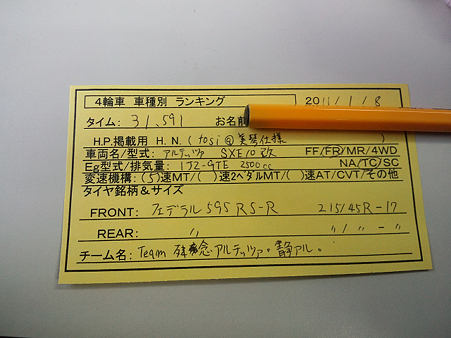 4輪車 車種別 ランキング 2011/1/8
タイム: 31,591 お名前
H.P.掲載用 H.N.( tosi@美琴仕様 )
車両名/型式: アルテッツァ SXE10改 FF/FR/MR/4WD
Eg型式/排気量: 1JZ-GTE 2500cc NA/TC/SC
変速機構:(5)速MT/( )速2ペダルMT/( )速AT/CVT/その他
タイヤ銘柄&サイズ
FRONT: フェデラル595 RS-R 215/45R-17
REAR: 〃 〃/〃-〃
チーム名: Team 残念アルテッツァ。静アル。